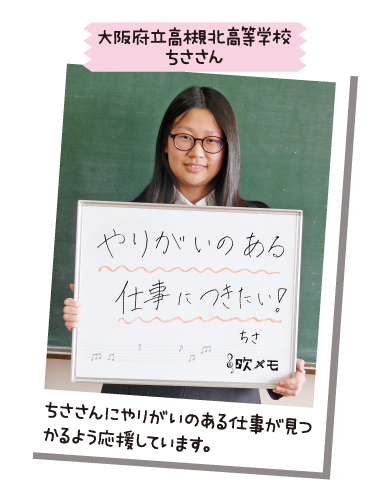 大阪府立高槻北高等学校
ちささん
やりがいのある
仕事につきたい!
ちさ
歌メモ
ちささんにやりがいのある仕事が見つ
かるよう応援しています。